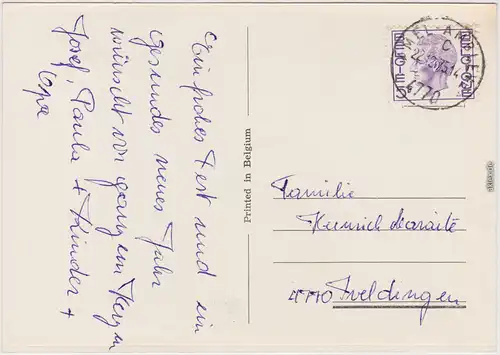 Ein frohes Fest und ein
gesundes neues Jahr
wünscht von ganzem Herzen
Josef, Paula + Kinder +
Opa
Printed in Belgium
AMEL-AMBLEVE
C
4770
Familie
Heinrich
4770 Iveldingen